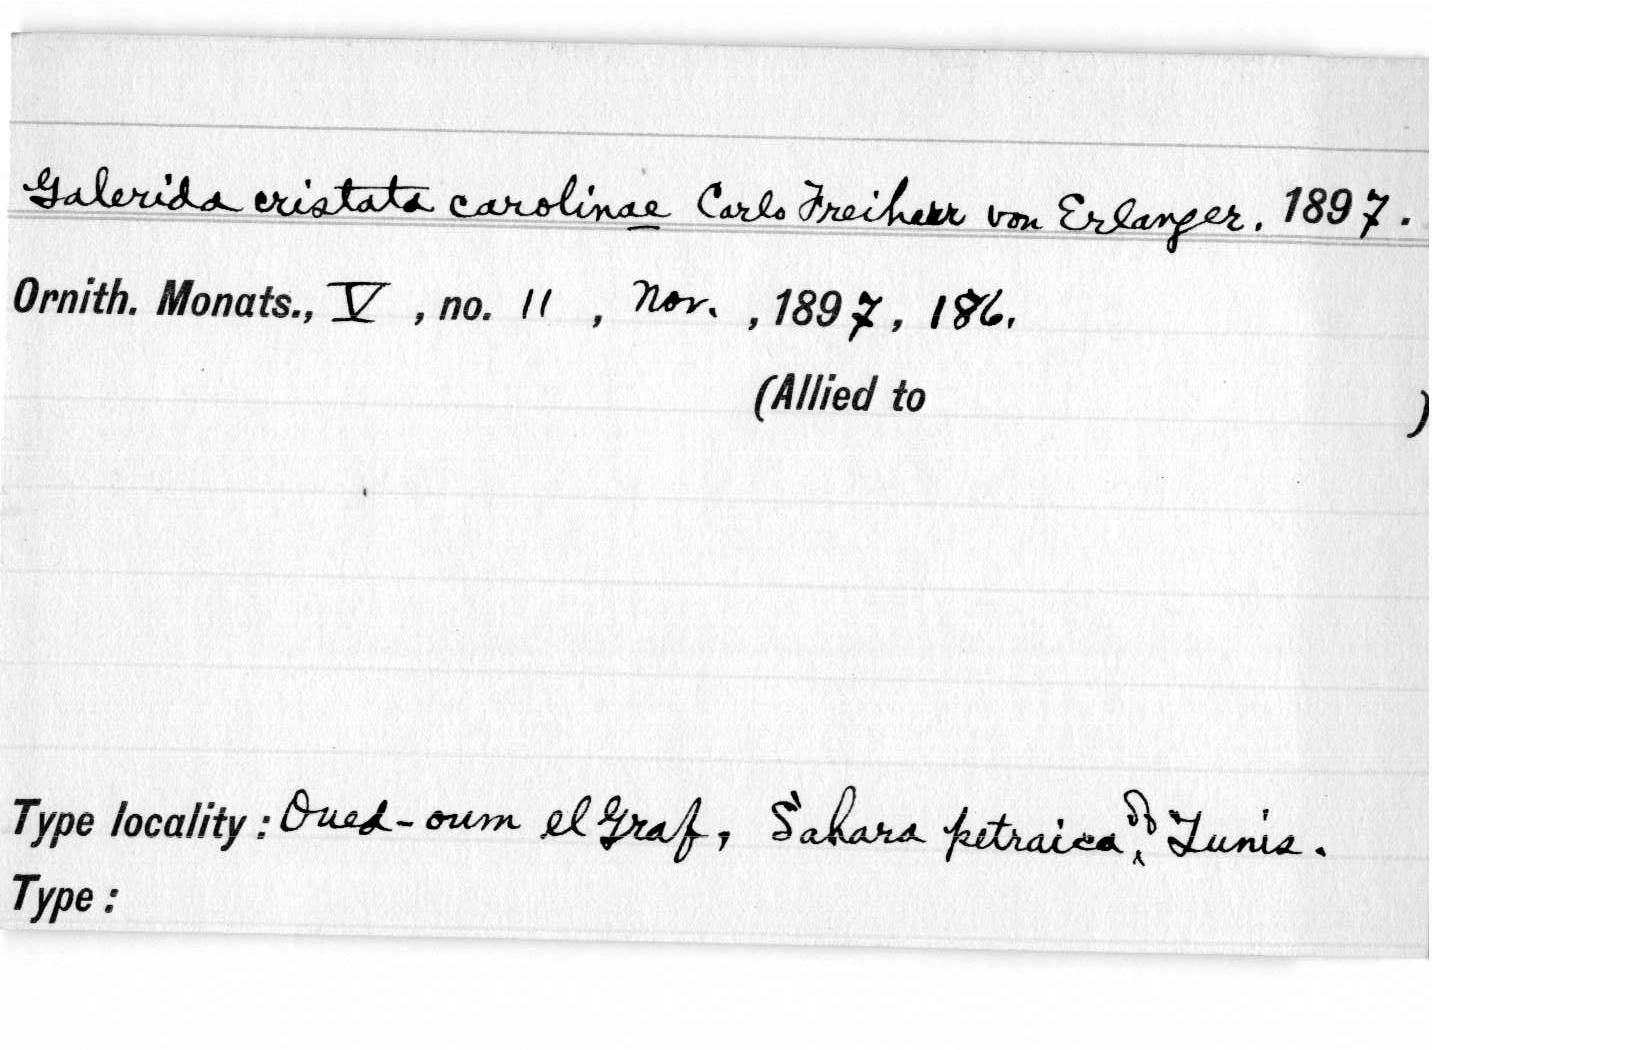 Galerida cristata carolinae Carlo Freiherr von Erlanger. 1897.
Ornith. Monats., V, no. 11, Nov., 1897, 186.
(Allied to )
Type locality: Oued-oum el Graf, Sahara petraica, of Tunis.
Type: